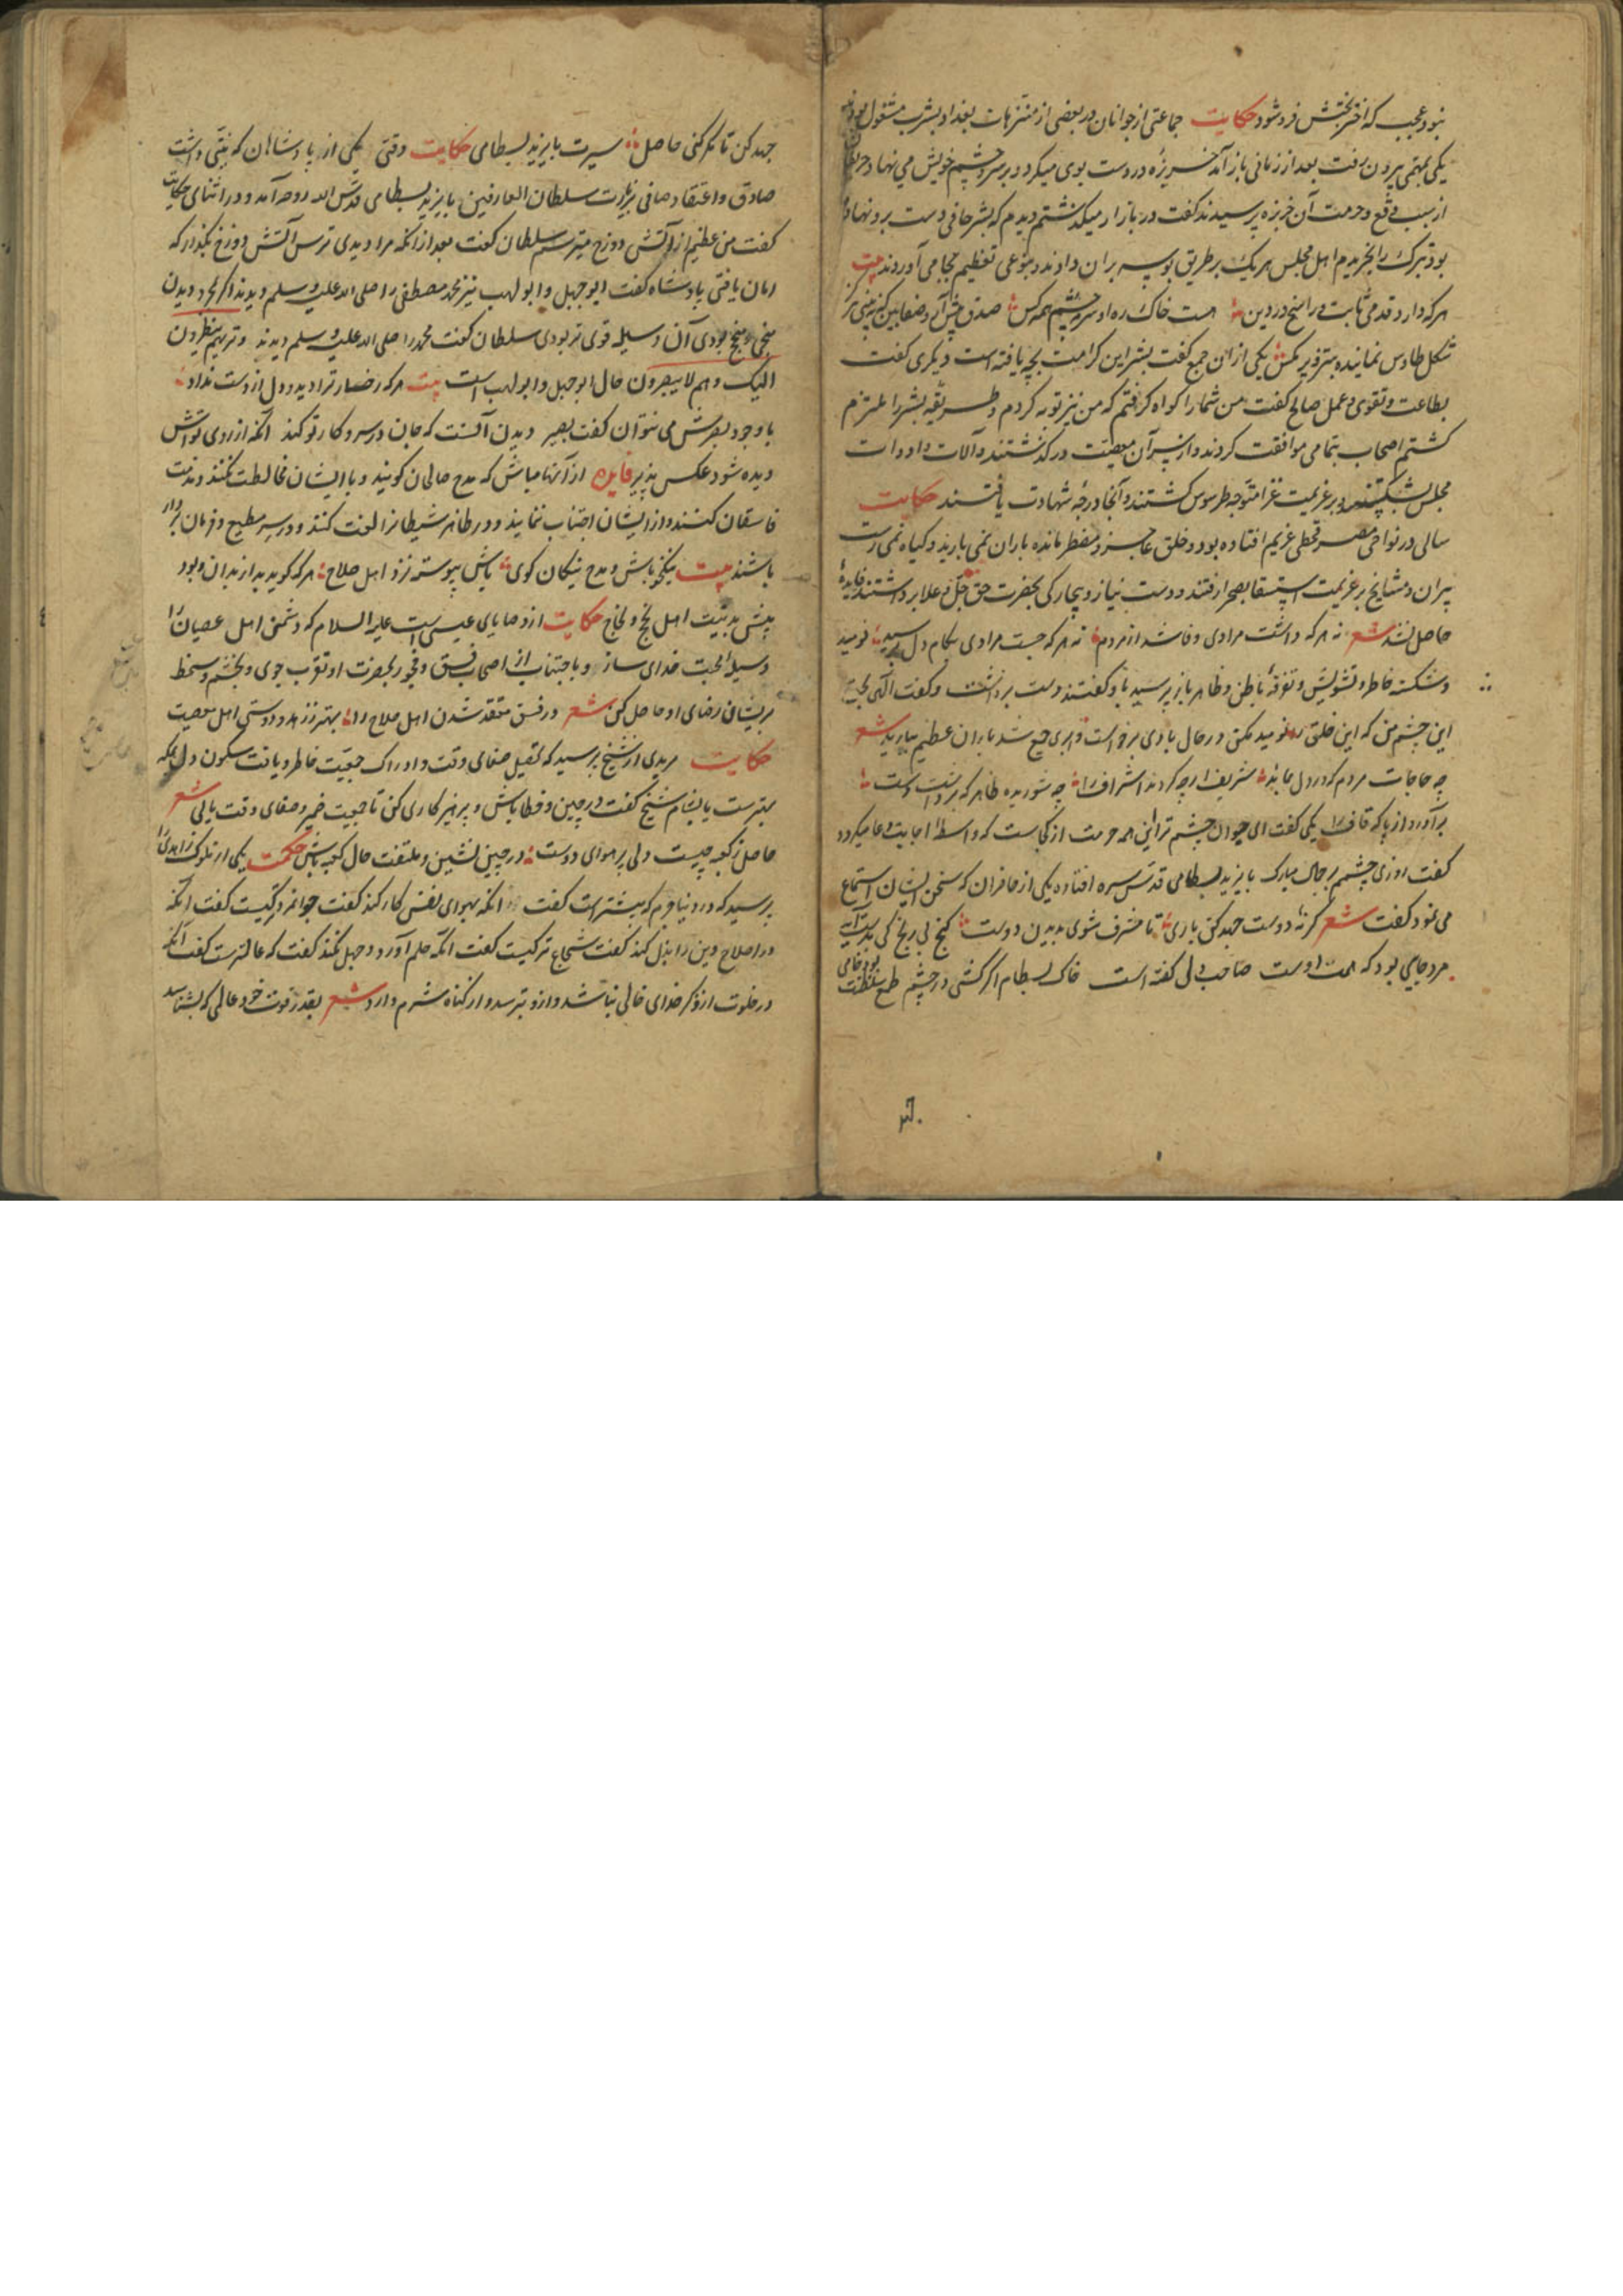 نبود عجب که اختر بختش فرو شود حکایت جماعتی از جوانان در بعضی از متنزهات بغداد بشرب مشغول بودند
یکی بمهمی بیرون رفت بعد از زمانی باز آمد خربزه در دست بوی میکرد و بر سر و چشم خویش می نهاد حریفان
از سبب وقع و حرمت آن خربزه پرسیدند گفت در بازار میگذشتم دیدم که بشر حافی دست برو نهاده
بود تبرک را بخریدم اهل مجلس هر یک بر طریق بوسه بران دادند و بنوعی تعظیم بجا می آوردند بیت
هر که دارد قدمی ثابت و راسخ در دین هست خاک ره او سرمه چشم همه کس صدق پیش آر و صفا بین که نه بینی هرگز
شکل طاوس نماینده بتزویر مگس یکی از ان جمع گفت بشر این کرامت بچه یافته است دیگری گفت
بطاعت و تقوی و عمل صالح گفت من شما را گواه گرفتم که من نیز توبه کردم و طریقه بشر را ملتزم
گشتم اصحاب بتمامی موافقت کردند و از سر آن معصیت درگذشتند و آلات و ادوات
مجلس بشکستند و بر عزیمت غزا متوجه طرسوس گشتند و آنجا درجه شهادت یافتند حکایت
سالی در نواحی مصر قحطی عظیم افتاده بود و خلق عاجز و مضطر مانده باران نمی بارید و گیاه نمی رست
پیران و مشایخ بر عزیمت استسقا بصحرا رفتند و دست نیاز و بیچارگی بحضرت حق جل و علا برداشتند فایده
حاصل نشد شعر نه هر که داشت مرادی وفا شد از مردم نه هر که جست مرادی بکام دل برسید نومید
و شکسته خاطر و تشویش و تفرقه باطن و ظاهر باز پرسید با و گفتند دست برداشت و گفت الهی بحق
این چشم من که این خلق را نومید مکن در حال بادی برخواست و ابری جمع شد باران عظیم ببارید شعر
چه حاجات مردم که در دل بماند شریف ارچه کردند اشراف را چه شوریده ظاهر که برداشت دست
برآورد از پا که قاف را یکی گفت ای جوان چشم ترا این همه حرمت از کجاست که واسطه اجابت دعا میگردد
گفت روزی چشمم بر جمال مبارک بایزید بسطامی قدس سره افتاده یکی از حاضران که سخن ایشان استماع
می نمود گفت شعر گر نه دوست جهد کن باری تا مشرف شوی بدیدن دوست گنج بی رنج کی بدست آید
مرد جایی بود که همت اوست صاحب دل گفته است خاک بسطام اگر کشی در چشم طمع سلطنت بود خامی
جهد کن تا مگر کنی حاصل سیرت بایزید بسطامی حکایت وقتی یکی از پادشاهان که نیتی داشت
صادق و اعتقاد صافی بزیارت سلطان العارفین بایزید بسطامی قدس الله روحه آمد و در اثنای حکایت
گفت من عظیم از آتش دوزخ میترسم سلطان گفت بعد از انکه مرا دیدی ترس آتش دوزخ بگذار که
امان یافتی پادشاه گفت ابو جهل و ابو لهب نیز محمد مصطفی را صلی الله علیه و سلم دیدند اگر مجرد دیدن
منجی و منجح بودی آن وسیله قوی تر بودی سلطان گفت محمد را صلی الله علیه و سلم دیدند و تریهم ینظرون
الیک و هم لا یبصرون حال ابو جهل و ابو لهب است بیت هر که رخسار ترا دید و دل از دست نداد
با وجود بصرش می نتوان گفت بصیر دیدن آنست که جان در سر و کار تو کند آنکه از روی تواش
دیده شود عکس پذیر فایده از آنها مباش که مدح صالحان گویند و با ایشان مخالطت نکنند و مذمت
فاسقان کنند و از ایشان اجتناب ننمایند و در ظاهر شیطانرا لعنت کنند و در سر مطیع و فرمان بردار
باشند بیت نیکو باش و مدح نیکان گوی باش پیوسته نزد اهل صلاح هر که گوید بد از بدان و بود
پیش بد نیت اهل نجح و نجاح حکایت از وصایای عیسی است علیه السلام که دشمنی اهل عصیان را
وسیله محبت خدای ساز و با جتناب از اصحاب فسق و فجور بحضرت او تقرب جوی و بخشم و سخط
بر ایشان رضای او حاصل کن شعر در فسق معتقد شدن اهل صلاح را بهتر ز زهد و دوستی اهل معصیت
حکایت مریدی از شیخ پرسید که تحصیل صفای وقت و ادراک جمعیت خاطر و یافت سکون دل بمکه
بهترست یا بشام شیخ گفت در چین و خطا باش و پرهیز کاری کن تا جمعیت ضمیر و صفای وقت یابی شعر
حاصل ز کعبه چیست دلی پر هوای دوست در چین نشین و ملتفت حال کعبه باش حکمت یکی از ملوک زاهدی را
پرسید که در دنیا قوم که بیشتر است گفت آنکه بهوای نفس کار کند گفت جوانمرد کیست گفت آنکه
در اصلاح دین را بذل کند گفت شجاع تر کیست گفت آنکه حلم آورد و جهل نکند گفت که عالمترست گفت آنکه
در خلوت از ذکر خدای خالی نباشد و ازو بترسد و از گناه شرم دارد شعر بقدر قوت خود عالمی که بشناسد